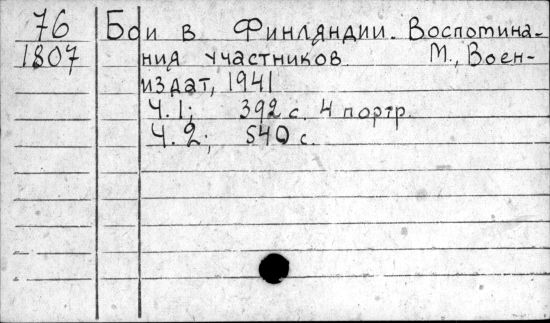 76 Бои в Финляндии. Воспомина-
1807 ния участников М., Воен-
издат, 1941
Ч.1; 392 с. 4 портр.
Ч.2; 540 с.